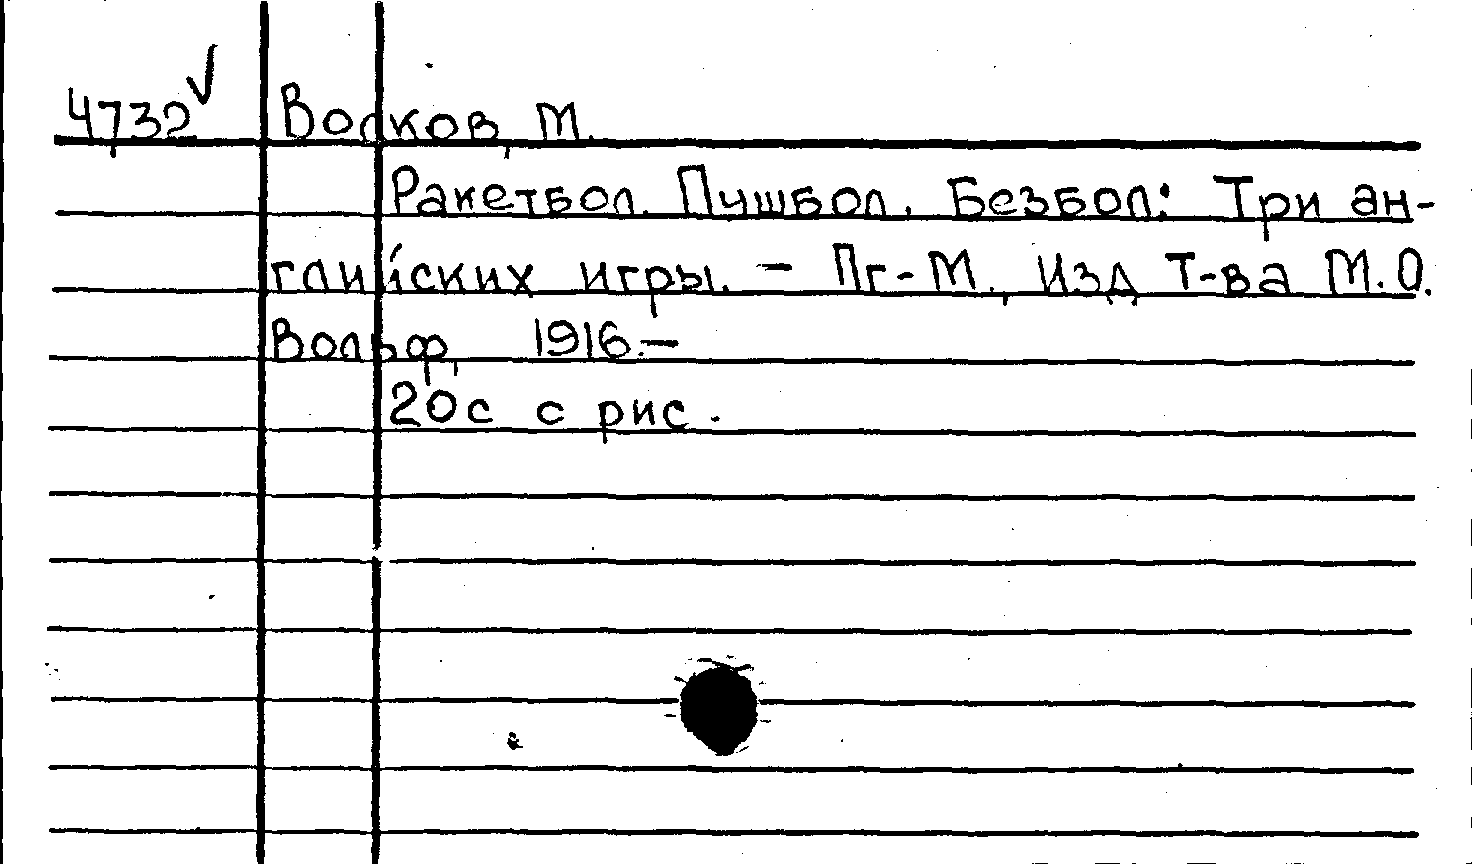 4732 ✓ Волков, М.
Ракетбол. Пушбол. Безбол: Три ан-
глийских игры. – Пг-М., Изд Т-ва М.О.
Вольф, 1916.–
20с с рис.